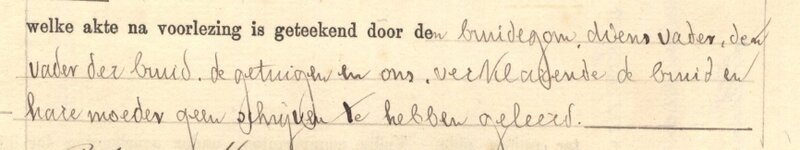 welke akte na voorlezing is geteekend door den bruidegom, diens vader, den
vader der bruid, de getuigen en ons, verklarende de bruid en
hare moeder geen schrijven te hebben geleerd.